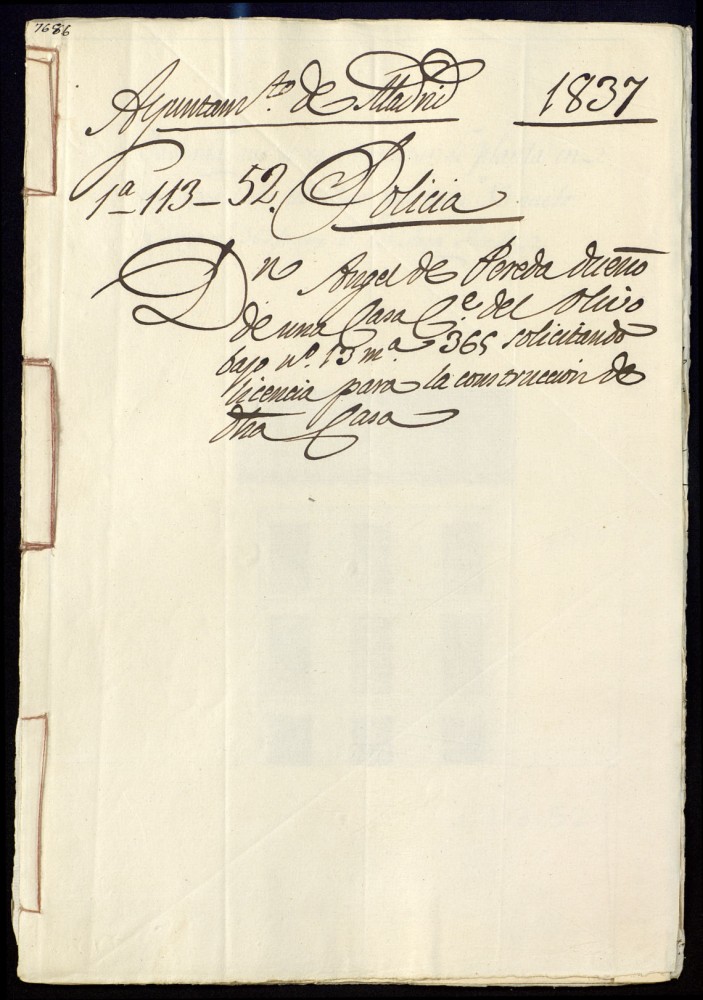 7686
Ayuntam.to de Madrid 1837
1a 113-52. Policia
Dn Angel de Pereda dueño
de una Casa C.e del Olivo
bajo no. 13 m.a 365 solicitando
licencia para la construccion de
otra Casa